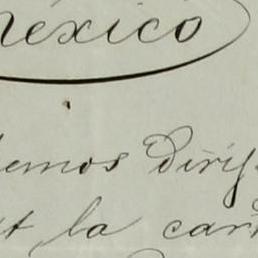 México
hemos dirij
t la car